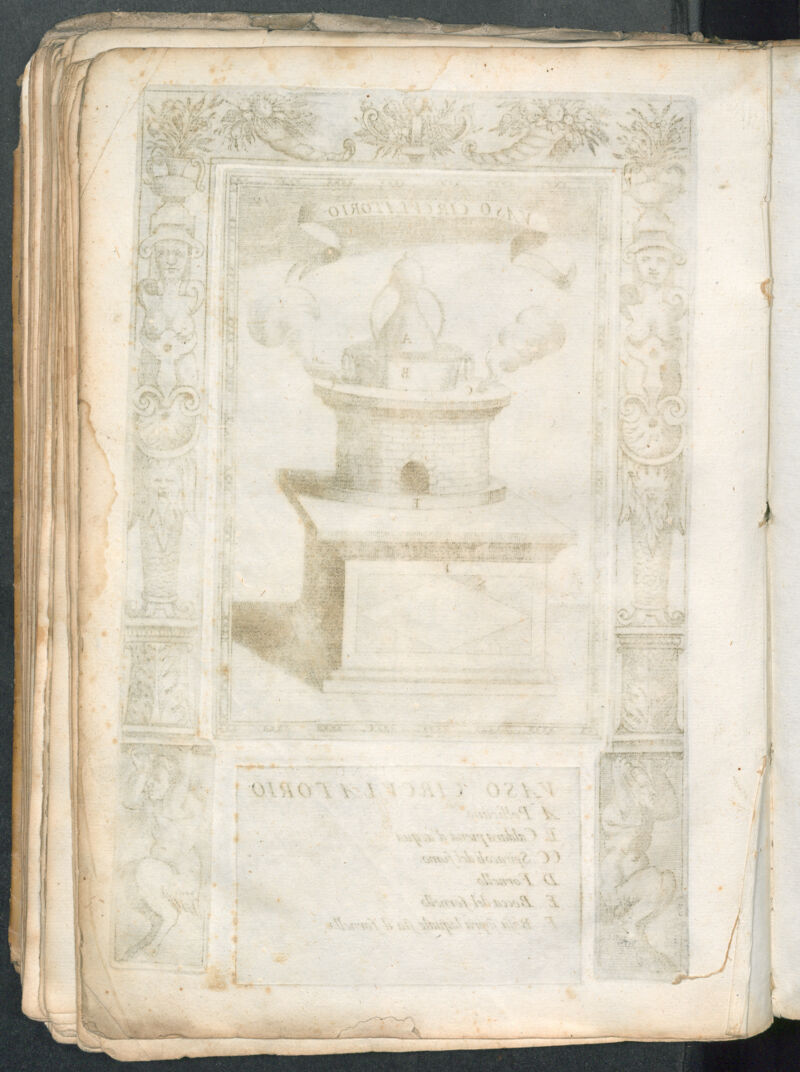 VASO CIRCVLATORIO
A
B
C
VASO CIRCVLATORIO
A Pellicano
B Caldara piena d'acqua
CC Spiracoli del fumo
D Fornello
E Bocca del fornello
F sopra laquale sta il fornello